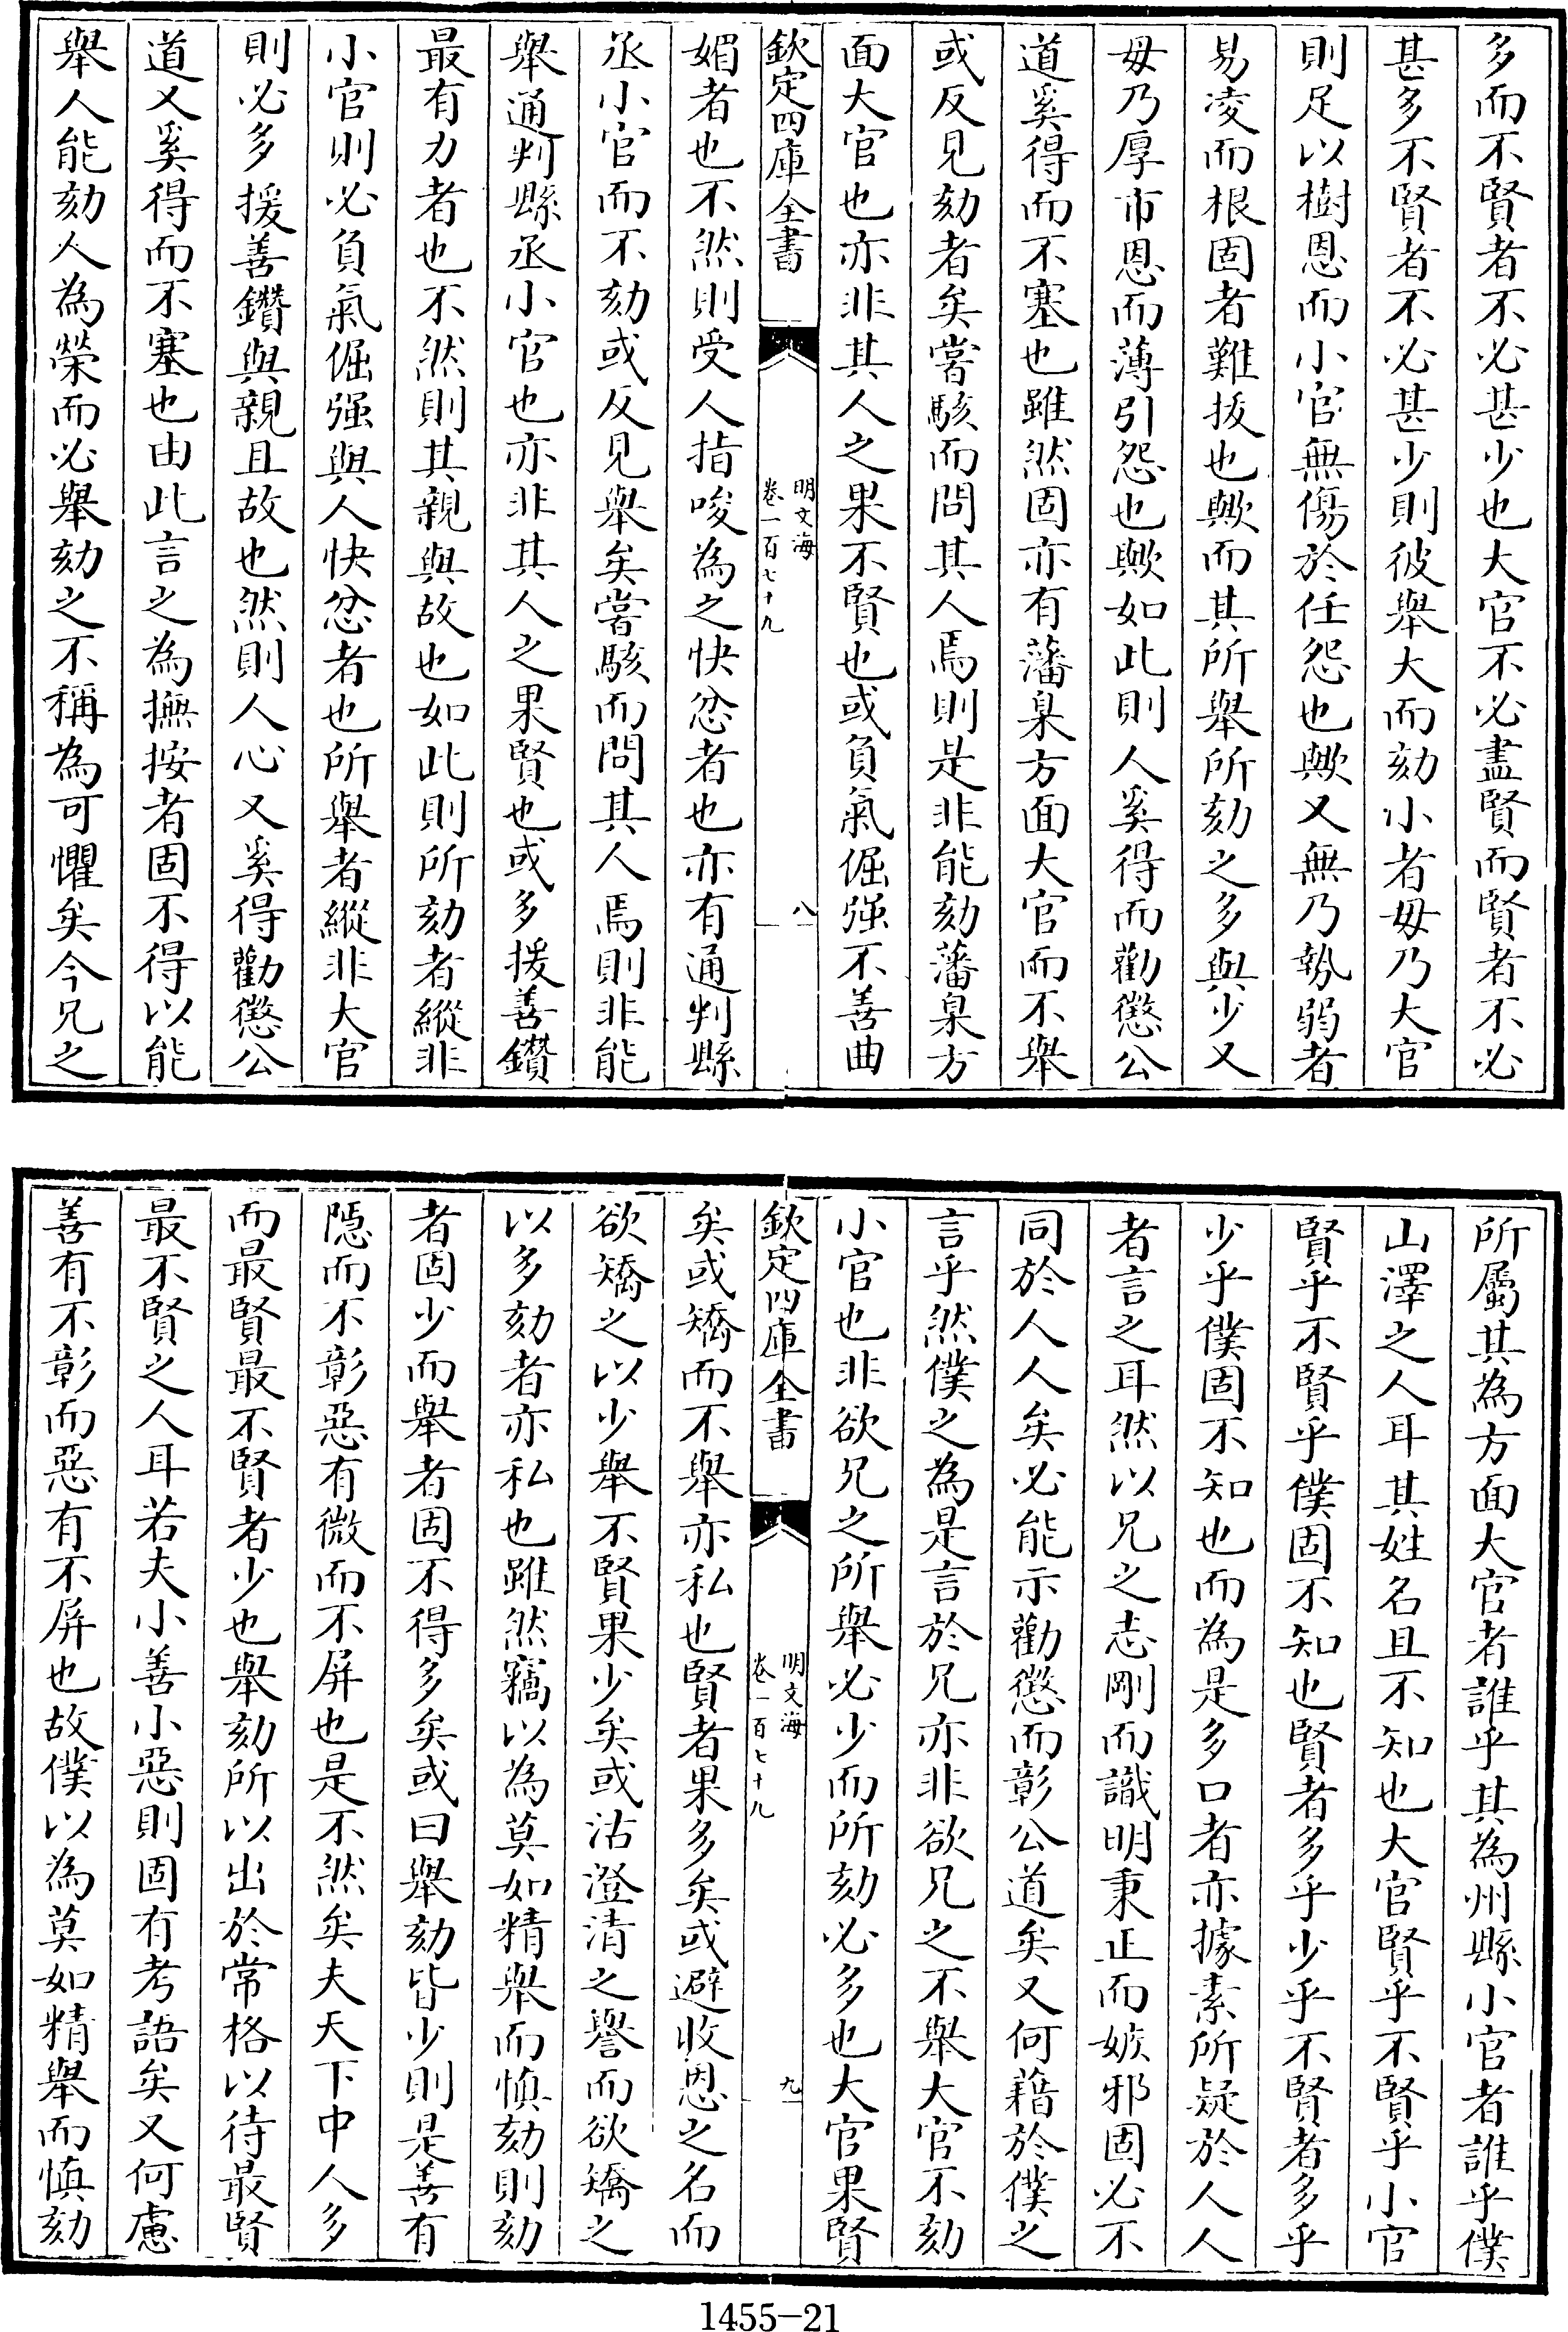 多而不賢者不必甚少也大官不必盡賢而賢者不必
甚多不賢者不必甚少則彼舉大而劾小者毋乃大官
則足以樹恩而小官無傷於任怨也歟又無乃勢弱者
易凌而根固者難拔也歟而其所舉所劾之多與少又
毋乃厚市恩而薄引怨也歟如此則人奚得而勸懲公
道奚得而不塞也雖然固亦有藩臬方面大官而不舉
或反見劾者矣嘗駭而問其人焉則是非能劾藩臬方
面大官也亦非其人之果不賢也或負氣倔强不善曲
欽定四庫全書
明文海
卷一百七十九
八
媚者也不然則受人指唆為之快忿者也亦有通判縣
丞小官而不劾或反見舉矣嘗駭而問其人焉則非能
舉通判縣丞小官也亦非其人之果賢也或多援善鑽
最有力者也不然則其親與故也如此則所劾者縱非
小官則必負氣倔强與人快忿者也所舉者縱非大官
則必多援善鑽與親且故也然則人心又奚得勸懲公
道又奚得而不塞也由此言之為撫按者固不得以能
舉人能劾人為榮而必舉劾之不稱為可懼矣今兄之
所屬其為方面大官者誰乎其為州縣小官者誰乎僕
山澤之人耳其姓名且不知也大官賢乎不賢乎小官
賢乎不賢乎僕固不知也賢者多乎少乎不賢者多乎
少乎僕固不知也而為是多口者亦據素所疑於人人
者言之耳然以兄之志剛而識明秉正而嫉邪固必不
同於人人矣必能示勸懲而彰公道矣又何藉於僕之
言乎然僕之為是言於兄亦非欲兄之不舉大官不劾
小官也非欲兄之所舉必少而所劾必多也大官果賢
欽定四庫全書
明文海
卷一百七十九
九
矣或矯而不舉亦私也賢者果多矣或避收恩之名而
欲矯之以少舉不賢果少矣或沽澄清之譽而欲矯之
以多劾者亦私也雖然竊以為莫如精舉而慎劾則劾
者固少而舉者固不得多矣或曰舉劾皆少則是善有
隱而不彰惡有微而不屏也是不然矣夫天下中人多
而最賢最不賢者少也舉劾所以出於常格以待最賢
最不賢之人耳若夫小善小惡則固有考語矣又何慮
善有不彰而惡有不屏也故僕以為莫如精舉而慎劾
1455-21